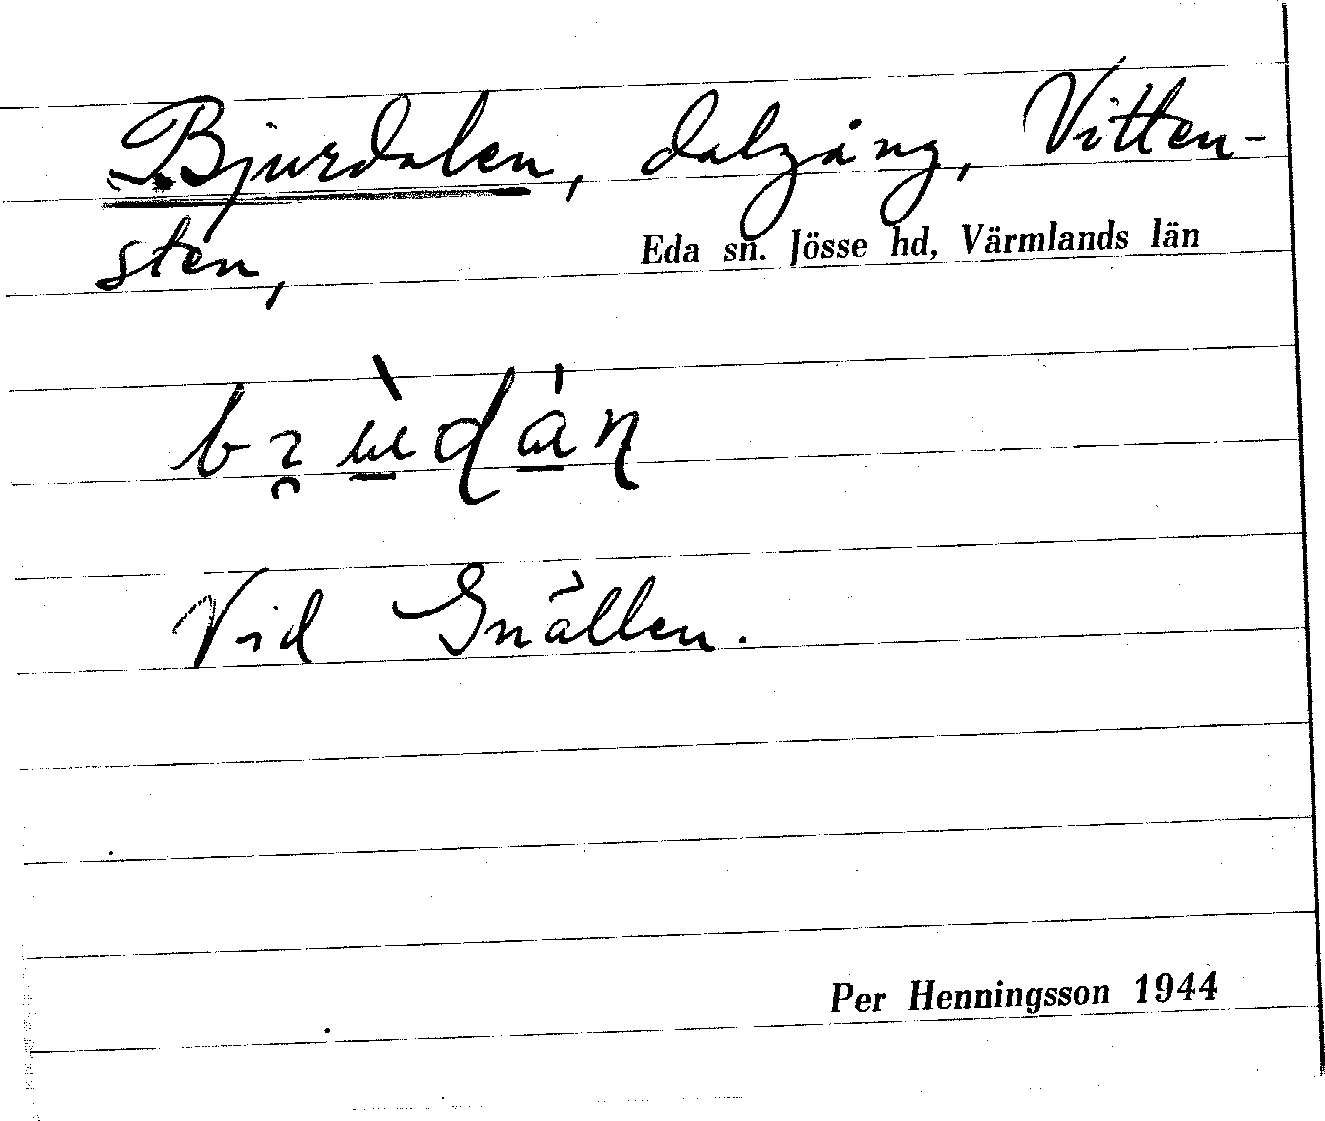 Bjurdalen, dalgång, Vitten-
sten,
Eda sn. Jösse hd, Värmlands län
Vid Gnällen.
Per Henningsson 1944